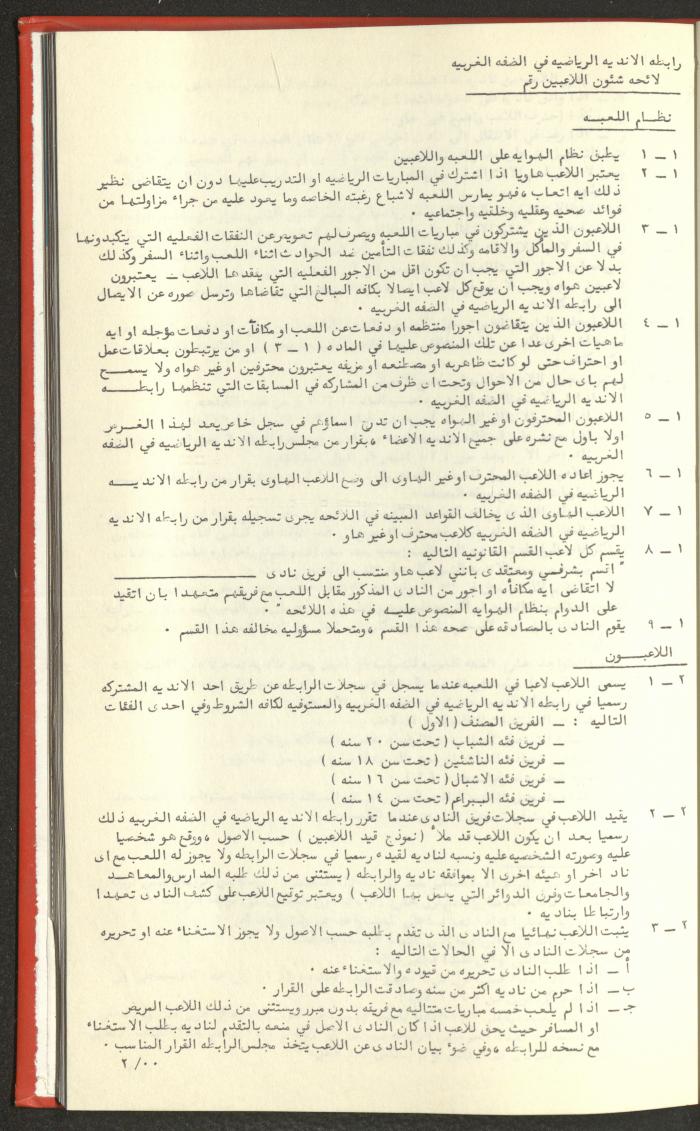 رابطه الانديه الرياضيه في الضفه الغربيه
لائحه شئون اللاعبين رقم
نظام اللعبه
١ – ١ يطبق نظام الهوايه على اللعبه واللاعبين
١ – ٢ يعتبر اللاعب هاويا اذا اشترك في المباريات الرياضيه او التدريب عليها دون ان يتقاضى نظير
ذلك ايه اتعاب ، فهو يمارس اللعبه لاشباع رغبته الخاصه وما يعود عليه من جراء مزاولتها من
فوائد صحيه وعقليه وخلقيه واجتماعيه ٠
١ – ٣ اللاعبون الذين يشتركون في مباريات اللعبه ويصرف لهم تعويض عن النفقات الفعليه التي يتكبدونها
في السفر والمأكل والاقامه وكذلك نفقات التأمين ضد الحوادث اثناء اللعب واثناء السفر وكذلك
بدلا عن الاجور التي يجب ان تكون اقل من الاجور الفعليه التي يفقدها اللاعب – يعتبرون
لاعبين هواه ويجب أن يوقع كل لاعب ايصالا بكافه المبالغ التي تقاضاها وترسل صوره عن الايصال
الى رابطه الانديه الرياضيه في الضفه الغربيه ٠
١ – ٤ اللاعبون الذين يتقاضون اجورا منتظمه او دفعات عن اللعب او مكافآت او دفعات مؤجله او ايه
ماهيات اخرى عدا عن تلك المنصوص عليها في الماده ( ١ – ٣ ) او من يرتبطون بعلاقات عمل
او احتراف حتى لو كانت ظاهريه او مصطنعه او مزيفه يعتبرون محترفين او غير هواه ولا يسمح
لهم باى حال من الاحوال وتحت اى ظرف من المشاركه في المسابقات التي تنظمها رابطه
الانديه الرياضيه في الضفه الغربيه ٠
١ – ٥ اللاعبون المحترفون او غير الهواه يجب ان تدرج اسماؤهم في سجل خاص يعد لهذا الغرض
اولا باول مع نشره على جميع الانديه الاعضاء ، بقرار من مجلس رابطه الانديه الرياضيه في الضفه
الغربيه ٠
١ – ٦ يجوز اعاده اللاعب المحترف او غير الهاوى الى وضع اللاعب الهاوى بقرار من رابطه الانديه
الرياضيه في الضفه الغربيه ٠
١ – ٧ اللاعب الهاوى الذى يخالف القواعد المبينه في اللائحه يجرى تسجيله بقرار من رابطه الانديه
الرياضيه في الضفه الغربيه كلاعب محترف او غير هاو ٠
١ – ٨ يقسم كل لاعب القسم القانونيه التاليه :
" اقسم بشرفي ومعتقدى بانني لاعب هاو منتسب الى فريق نادى
لا اتقاضى ايه مكافأه او اجور من النادى المذكور مقابل اللعب مع فريقهم متعهدا بان اتقيد
على الدوام بنظام الهوايه المنصوص عليه في هذه اللائحه " ٠
١ – ٩ يقوم النادى بالمصادقه على صحه هذا القسم ، ومتحملا مسؤوليه مخالفه هذا القسم ٠
اللاعبون
٢ – ١ يسمى اللاعب لاعبا في اللعبه عندما يسجل في سجلات الرابطه عن طريق احد الانديه المشتركه
رسميا في رابطه الانديه الرياضيه في الضفه الغربيه والمستوفيه لكافه الشروط وفي احدى الفئات
التاليه : – الفريق المصنف ( الاول )
– فريق فئه الشباب ( تحت سن ٢٠ سنه )
– فريق فئه الناشئين ( تحت سن ١٨ سنه )
– فريق فئه الاشبال ( تحت سن ١٦ سنه )
– فريق فئه البراعم ( تحت سن ١٤ سنه )
٢ – ٢ يقيد اللاعب في سجلات فريق النادى عندما تقرر رابطه الانديه الرياضيه في الضفه الغربيه ذلك
رسميا بعد ان يكون اللاعب قد ملأ ( نموذج قيد اللاعبين ) حسب الاصول ، ووقع هو شخصيا
عليه وصورته الشخصيه عليه ونسبه لناديه لقيده رسميا في سجلات الرابطه ولا يجوز له اللعب مع اى
ناد اخر او هيئه اخرى الا بموافقه ناديه والرابطه ( يستثنى من ذلك طلبه المدارس والمعاهد
والجامعات وفرق الدوائر التي يعمل بها اللاعب ) ويعتبر توقيع اللاعب على كشف النادى تعهدا
وارتباطا بناديه ٠
٢ – ٣ يثبت اللاعب نهائيا مع النادى الذى تقدم بطلبه حسب الاصول ولا يجوز الاستغناء عنه او تحريره
من سجلات النادى الا في الحالات التاليه :
أ – اذا طلب النادى تحريره من قيوده والاستغناء عنه ٠
ب – اذا حرم من ناديه اكثر من سنه وصادقت الرابطه على القرار ٠
جـ – اذا لم يلعب خمسه مباريات متتاليه مع فريقه بدون مبرر ويستثنى من ذلك اللاعب المريض
او المسافر حيث يحق للاعب اذا كان النادى الاصل في منعه بالتقدم لناديه بطلب الاستغناء
مع نسخه للرابطه ، وفي ضوء بيان النادى عن اللاعب يتخذ مجلس الرابطه القرار المناسب ٠
٢/٠٠